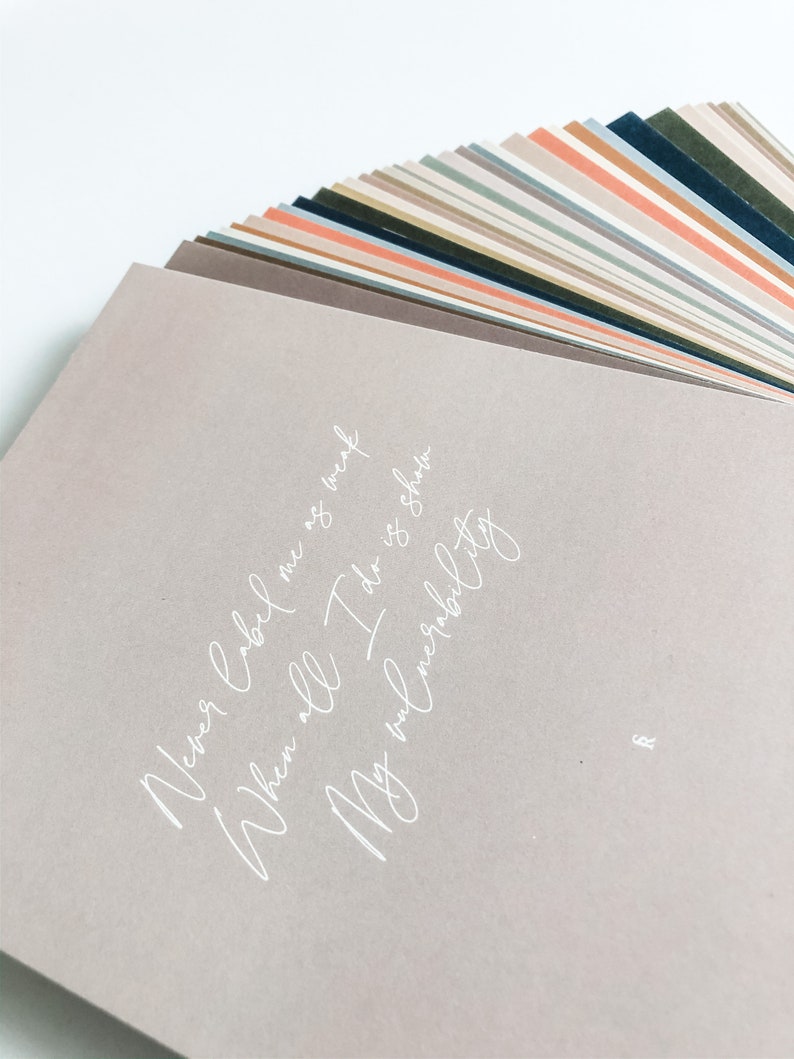 Never label me as weak
When all I do is show
My vulnerability